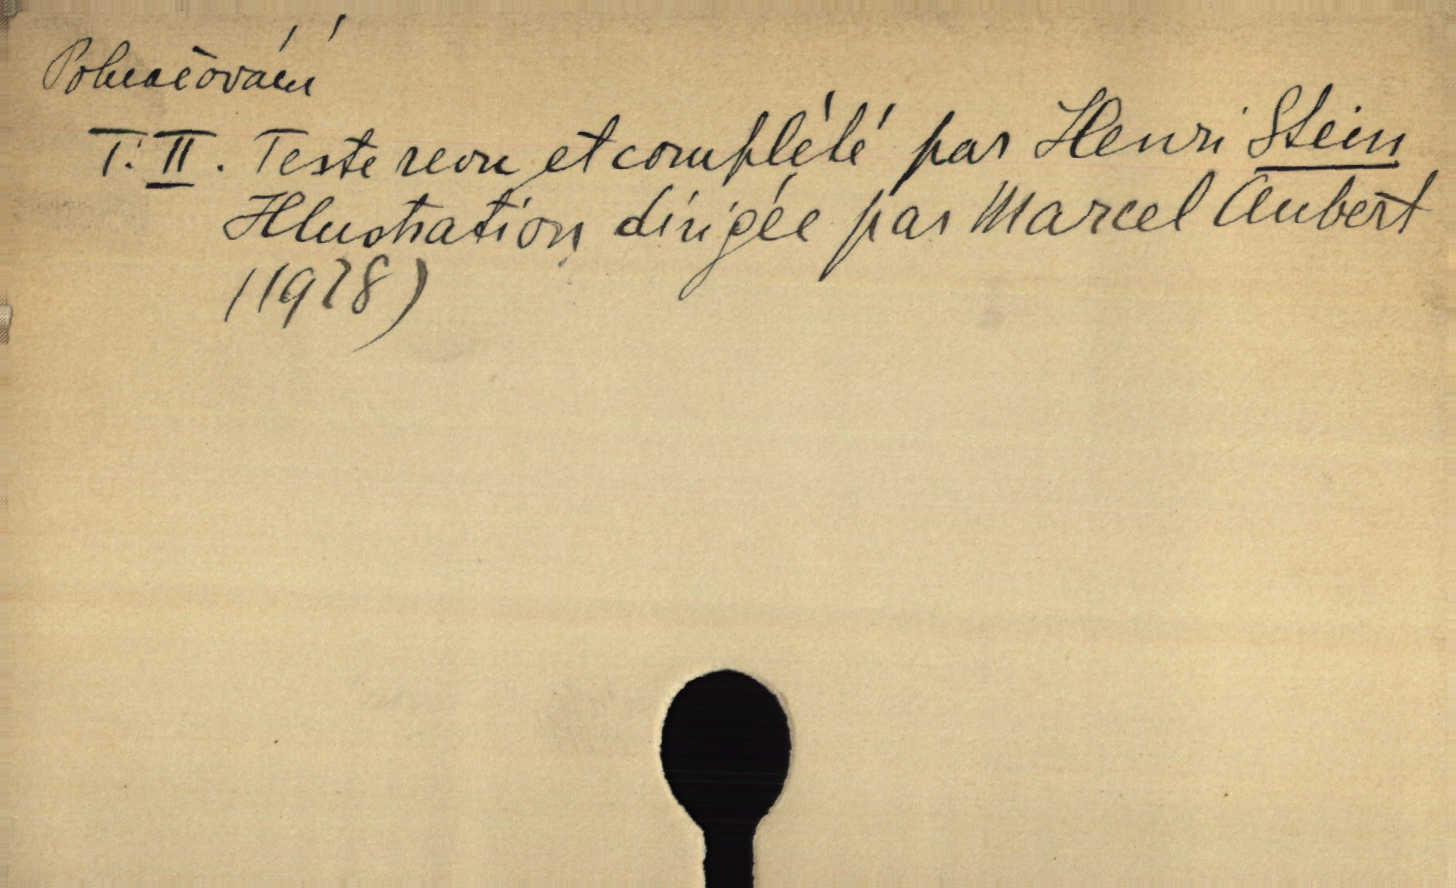 Pokračování
T. II. Teste revu et complété par Henri Stein
Illustration dirigée par Marcel Aubert
(1928)